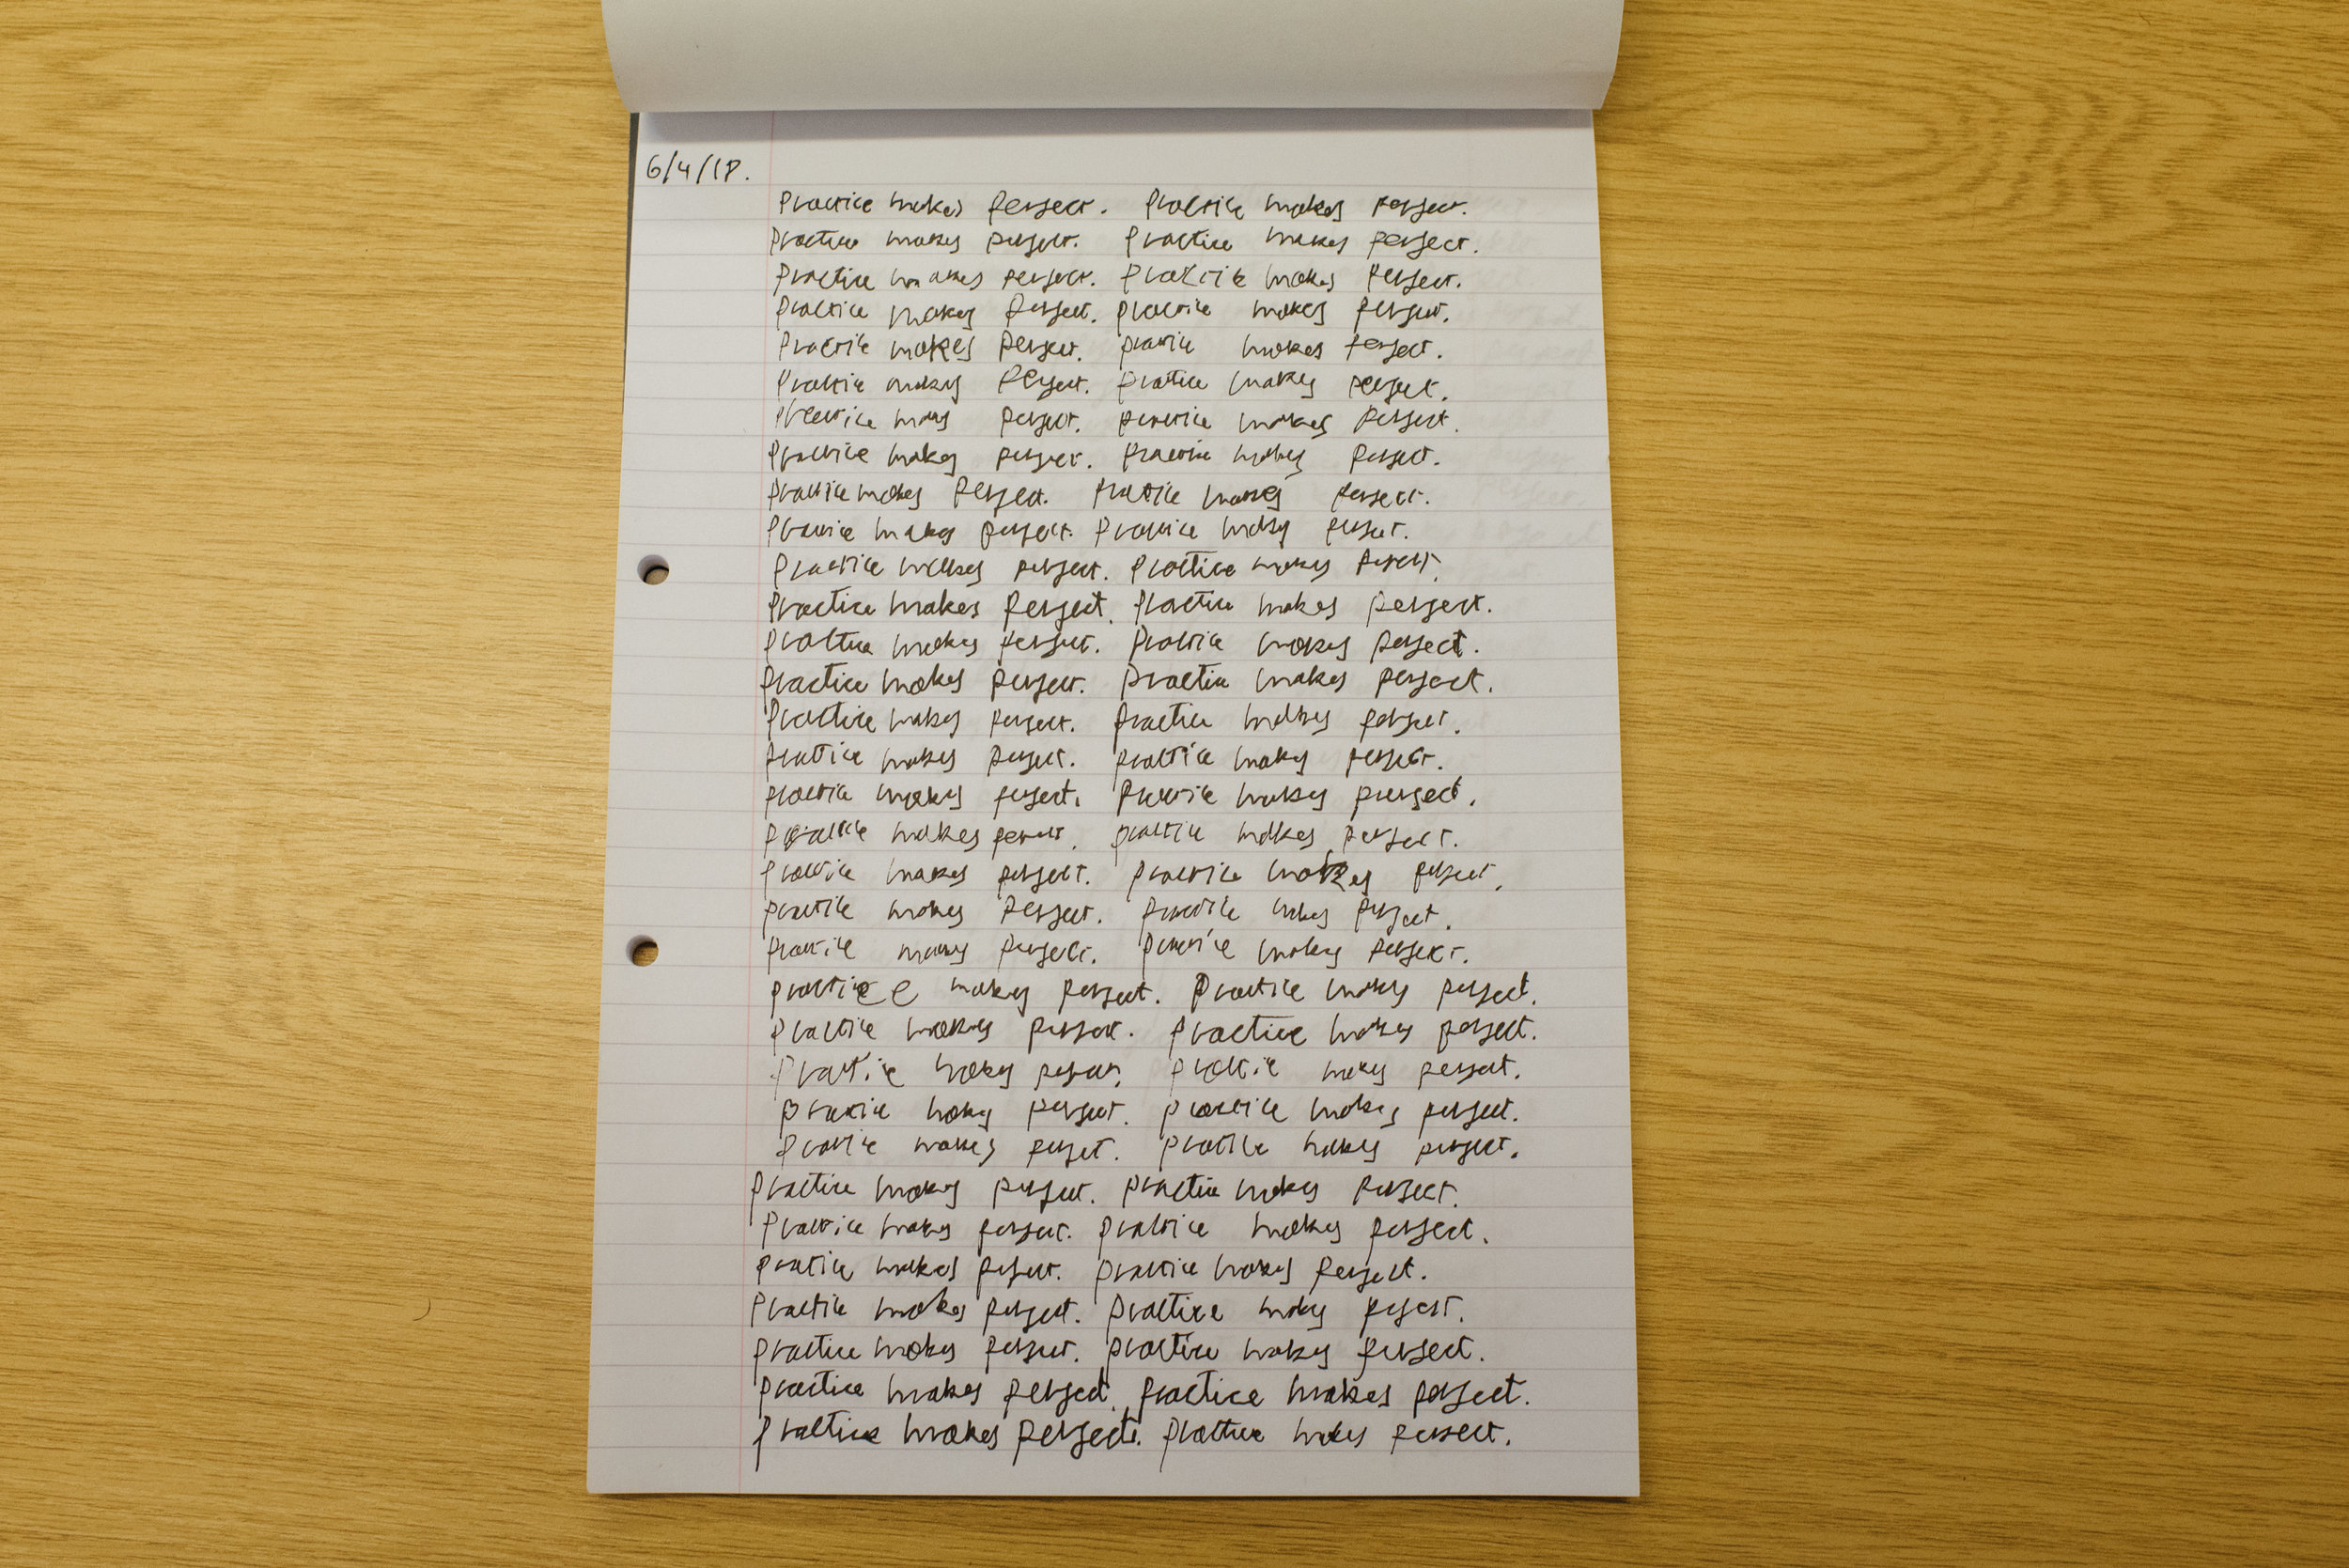 6/4/18.
Practice makes perfect. Practice makes perfect.
Practice makes perfect. Practice makes perfect.
Practice makes perfect. Practice makes perfect.
Practice makes perfect. Practice makes perfect.
Practice makes perfect. Practice makes perfect.
Practice makes perfect. Practice makes perfect.
Practice makes perfect. Practice makes perfect.
Practice makes perfect. Practice makes perfect.
Practice makes perfect. Practice makes perfect.
Practice makes perfect. Practice makes perfect.
Practice makes perfect. Practice makes perfect.
Practice makes perfect. Practice makes perfect.
Practice makes perfect. Practice makes perfect.
Practice makes perfect. Practice makes perfect.
Practice makes perfect. Practice makes perfect.
Practice makes perfect. Practice makes perfect.
Practice makes perfect. Practice makes perfect.
Practice makes perfect. Practice makes perfect.
Practice makes perfect. Practice makes perfect.
Practice makes perfect. Practice makes perfect.
Practice makes perfect. Practice makes perfect.
Practice makes perfect. Practice makes perfect.
Practice makes perfect. Practice makes perfect.
Practice makes perfect. Practice makes perfect.
Practice makes perfect. Practice makes perfect.
Practice makes perfect. Practice makes perfect.
Practice makes perfect. Practice makes perfect.
Practice makes perfect. Practice makes perfect.
Practice makes perfect. Practice makes perfect.
Practice makes perfect. Practice makes perfect.
Practice makes perfect. Practice makes perfect.
Practice makes perfect. Practice makes perfect.
Practice makes perfect. Practice makes perfect.